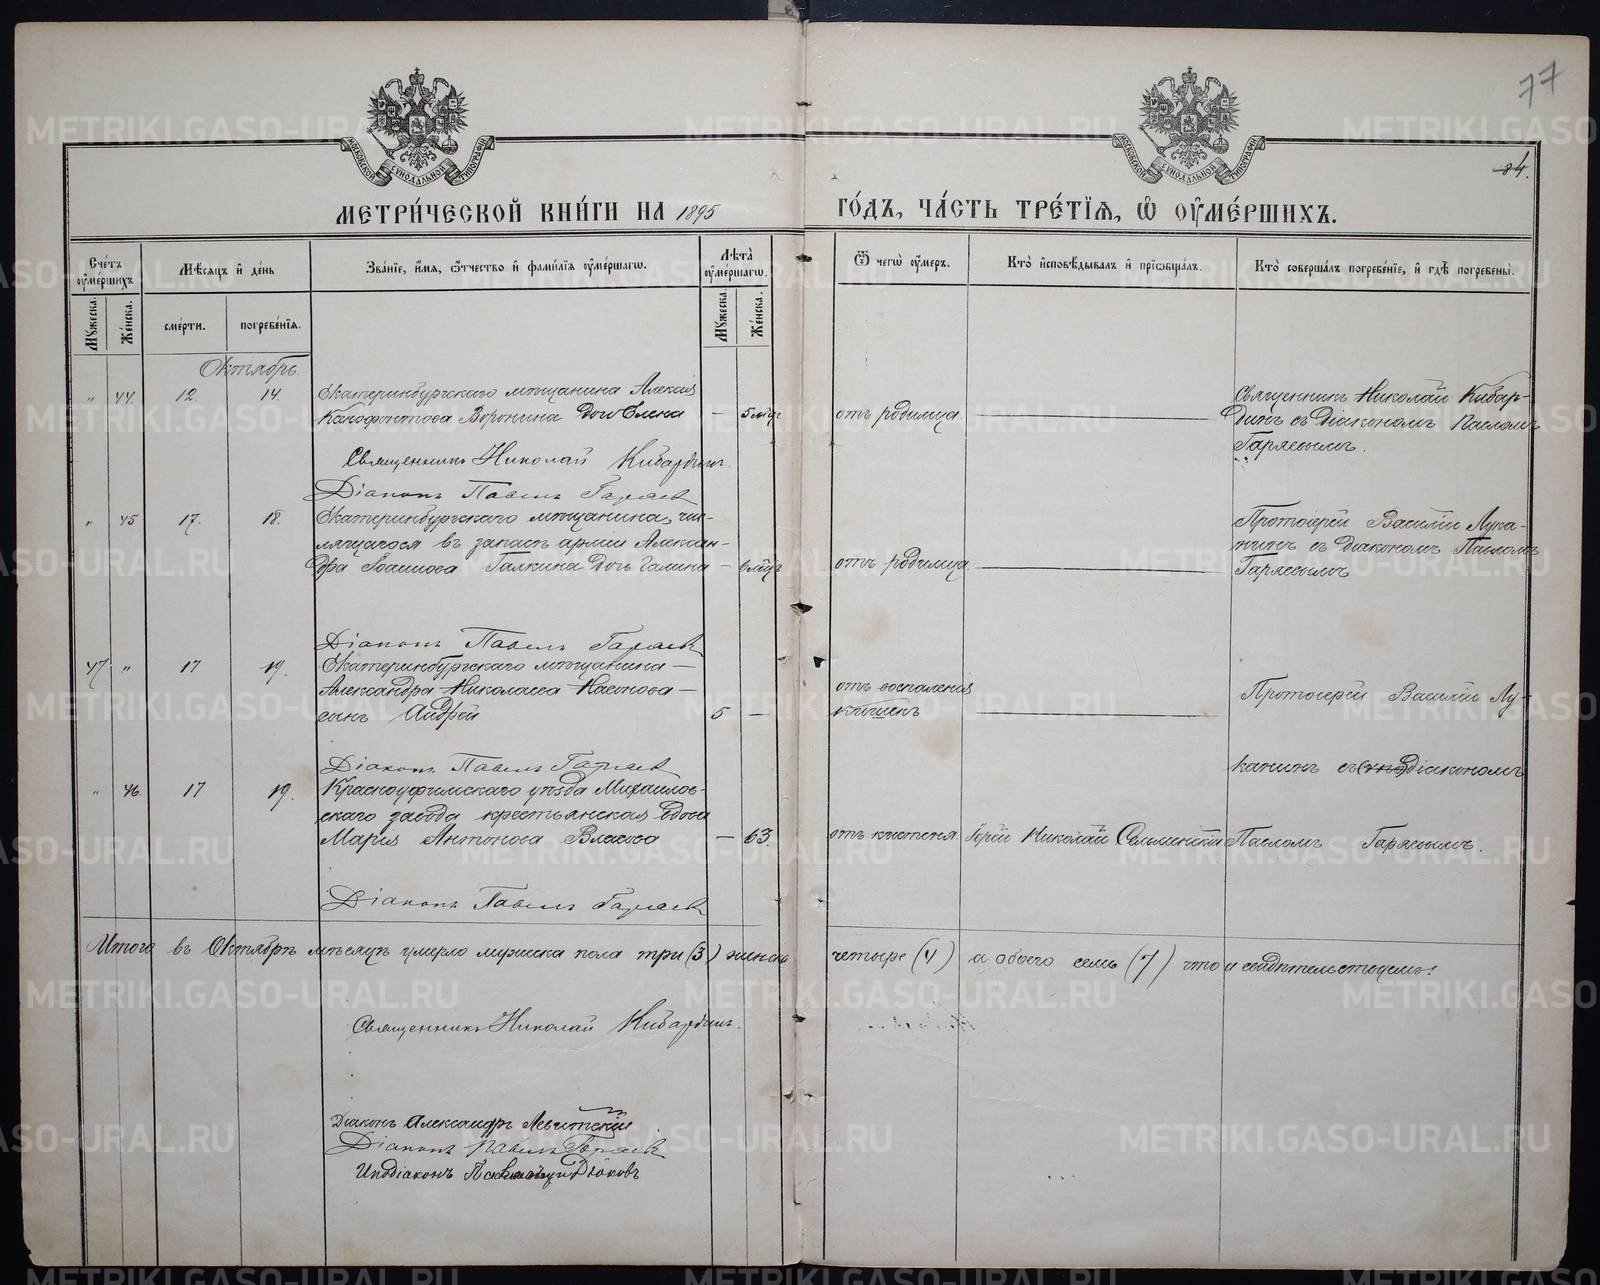 77
84.
МОСКОВСКОЙ СѴНОДАЛЬНОЙ ТИПОГРАФІИ
МОСКОВСКОЙ СѴНОДАЛЬНОЙ ТИПОГРАФІИ
МЕТРИ́ЧЕСКОЙ КНИ́ГИ НА 1895 ГО́ДЪ, ЧА́СТЬ ТРЕ́ТІѦ, Ѡ҆ ОУ҆МЕ́РШИХЪ.
Сче́тъ оу҆ме́ршихъ.
Мѣ́сяцъ и҆ де́нь
Зва́нїе, и҆́мѧ, ѻ҆́тчество и҆ фами́лїѧ оу҆ме́ршагѡ.
Лѣ́та оу҆ме́ршагѡ.
Ѿ чегѡ̀ оу҆́меръ.
Кто̀ и҆сповѣ́дывалъ и҆ прїѡбща́лъ.
Кто̀ соверша́лъ погребе́нїе, и҆ гдѣ̀ погребены̀.
Мꙋ́жеска.
Же́нска.
сме́рти.
погребе́нїѧ.
Мꙋ́жеска.
Же́нска.
Октябрь.
" 44. 12. 14. Екатеринбургскаго мѣщанина Алексія
Воронина дочь Елена — 5 мѣс. отъ родимца —
Священникъ Николай Кибар-
динъ съ Діакономъ Павломъ
Гаряевымъ.
Священникъ Николай Кибардинъ.
Діаконъ Павелъ Гаряевъ
" 45 17. 18. Екатеринбургскаго мѣщанина, чис-
лящагося въ запасѣ арміи Алексан-
дра Іоаннова Галкина дочь Галина — 6 мѣс. отъ родимца —
Протоіерей Василій Лука-
нинъ съ Діакономъ Павломъ
Гаряевымъ
Діаконъ Павелъ Гаряевъ
47 " 17 19. Екатеринбургскаго мѣщанина —
Александра Николаева —
сынъ Андрей 5 — отъ воспаленія
кишекъ —
Протоіерей Василій Лу-
Діаконъ Павелъ Гаряевъ
канинъ съ діакономъ
" 46. 17 19. Красноуфимскаго уѣзда Михайлов-
скаго завода крестьянская вдова
Марія Антонова Власова — 63. отъ Іерей Николай Сельменскій Павломъ Гаряевымъ.
Діаконъ Павелъ Гаряевъ
Итого въ Октябрѣ мѣсяцѣ умерло мужеска пола три (3) женска четыре (4) а обоего семь (7) что и свидѣтельствуемъ:
Священникъ Николай Кибардинъ.
Діаконъ Александръ Левитскій
Діаконъ Павелъ Гаряевъ
Иподіаконъ Дьяковъ
METRIKI.GASO-URAL.RU